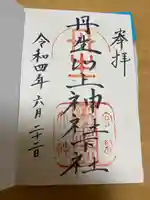 奉拝
丹生川上神社
令和四年六月二十二日